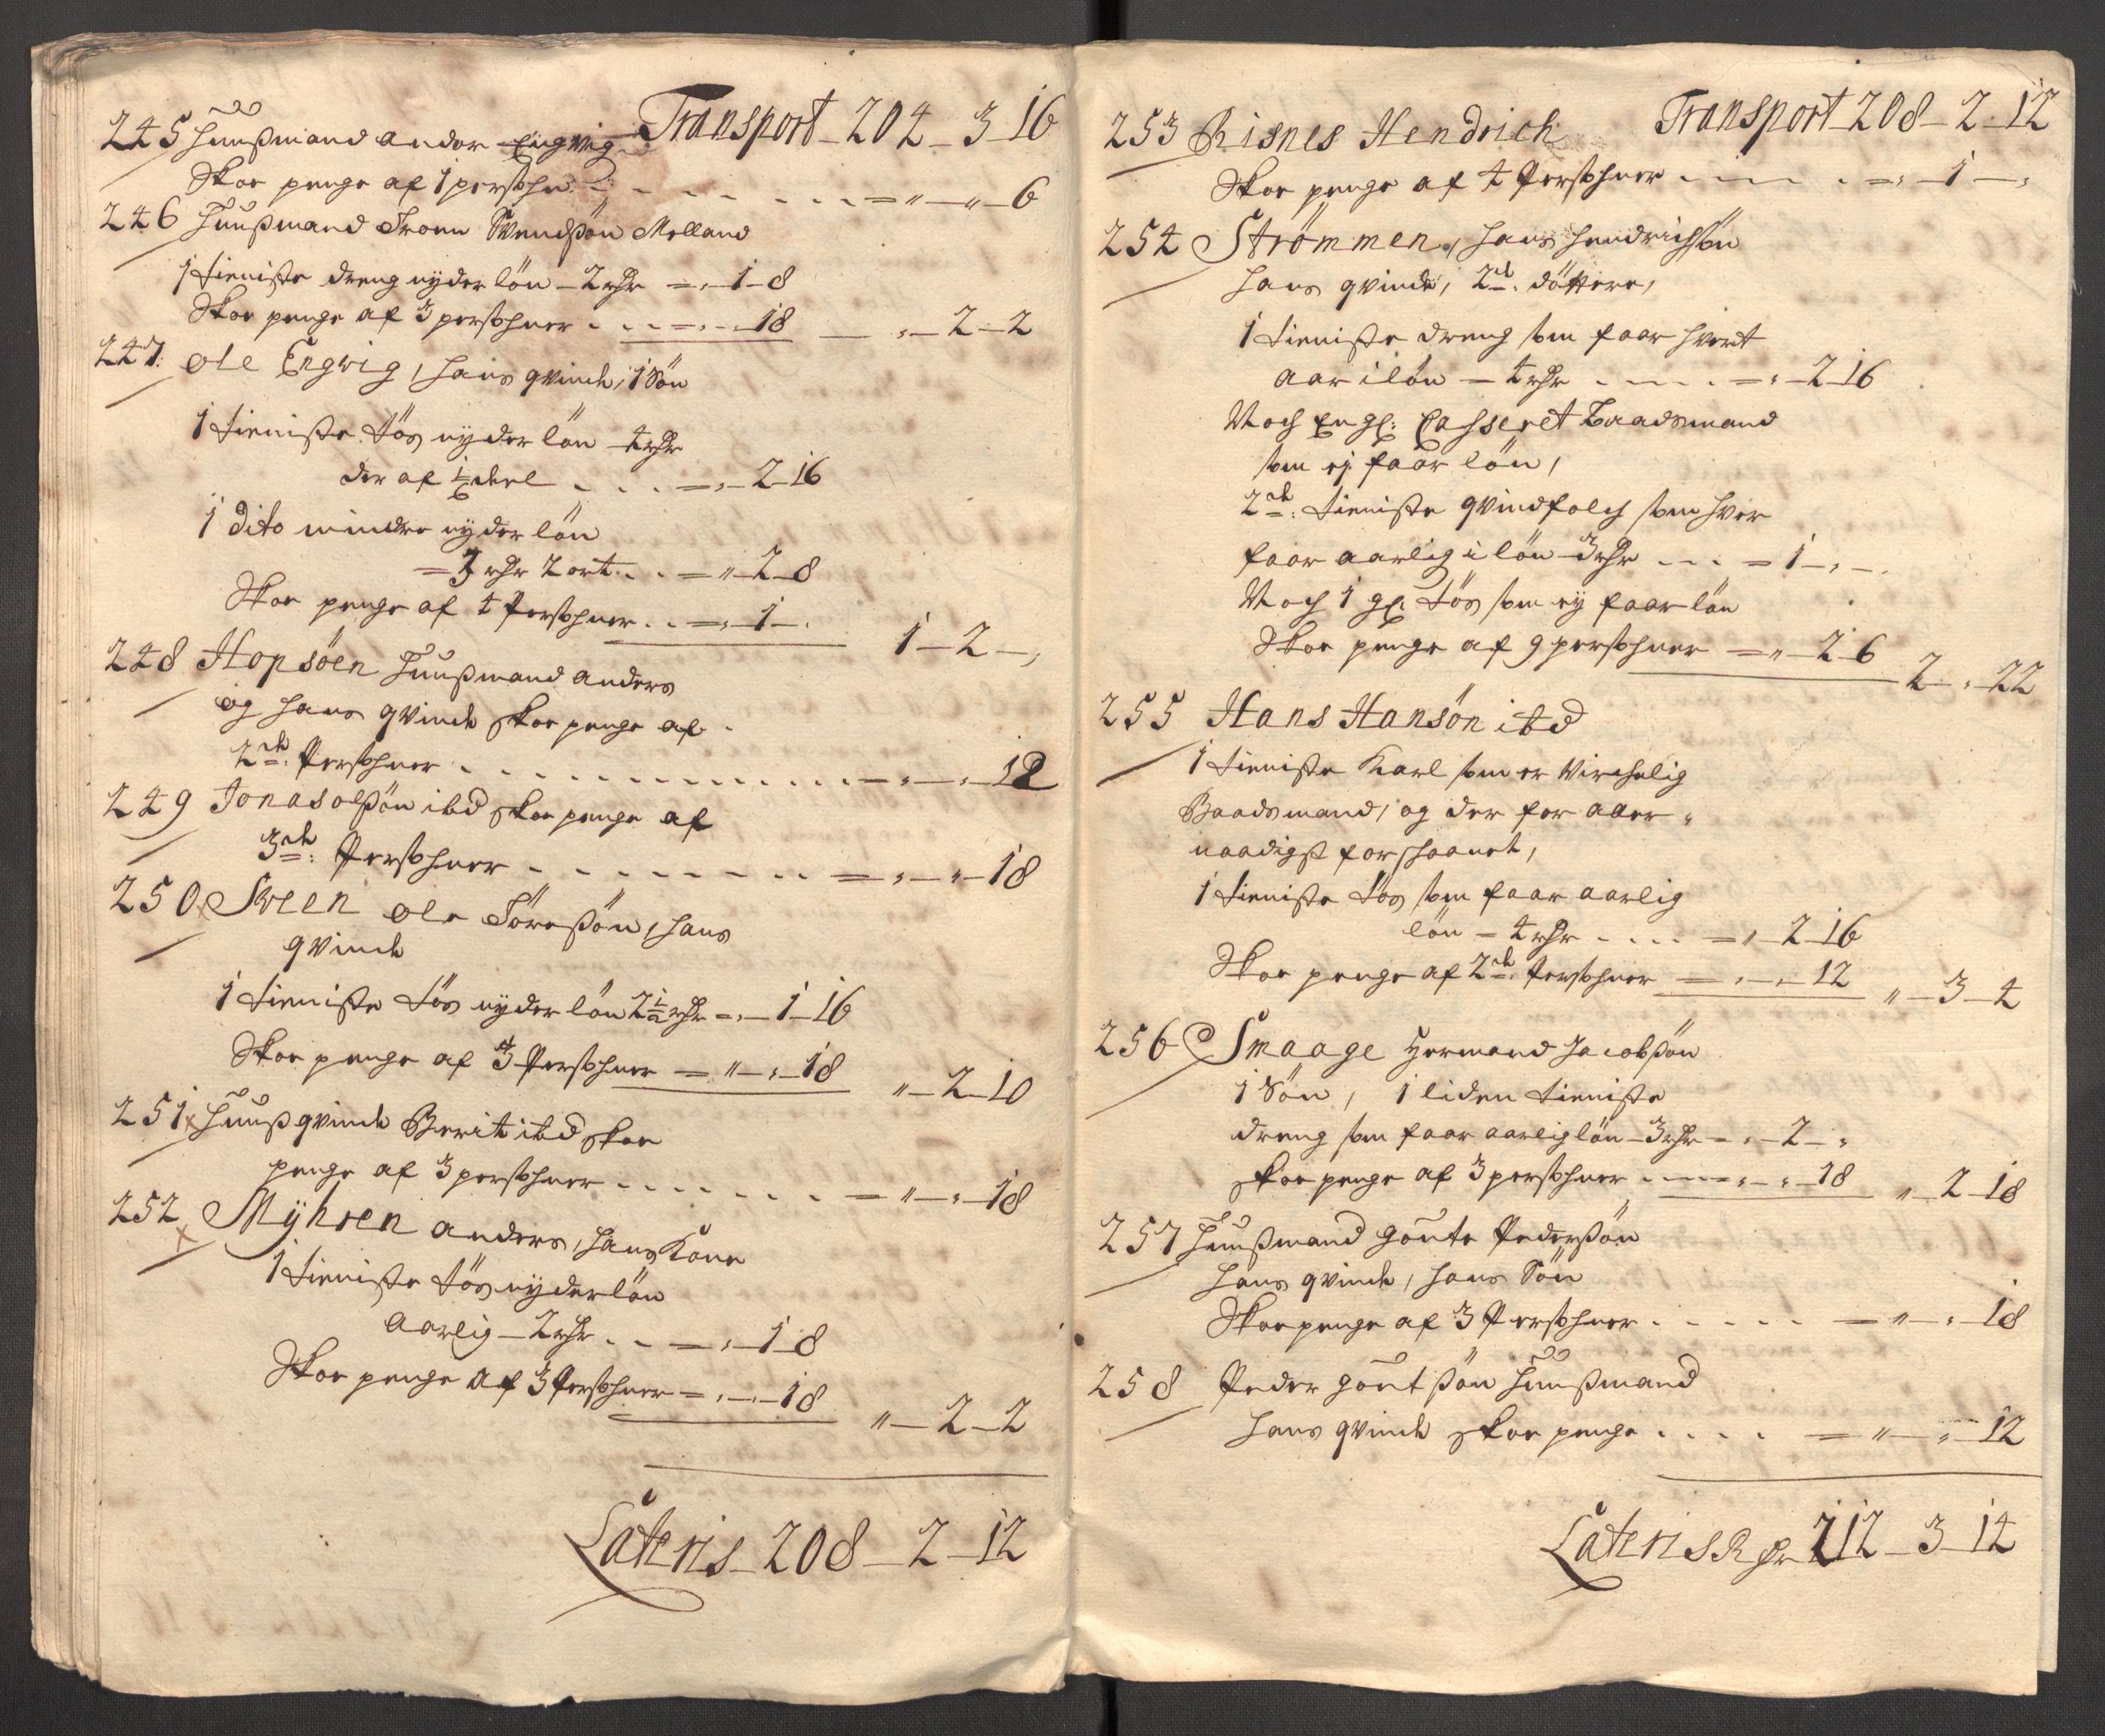 Transport – 204 – 3 – 16
245 Huusmand Andor Engvig
Skoe penge af 1 persohn – „ – „ – 6
246 Huusmand Troen Svendsøn Molland
1 tieniste dreng nyder løn – 2 rdr = „ – 1 – 8
Skoe penge af 3 persohner . . . = „ – „ – 18 — „ – 2 – 2
247. Ole Engvig, hans qvinde, 1 Søn
1 tieniste tøs nyder løn 4 rdr
der af 1/6 deel . . . = „ – 2 – 16
1 dito mindre nyder løn
= 3 rdr 2 ort . . = „ – 2 – 8
Skoe penge af 4 Persohner . . = „ – 1 – „ 1 – 2 – „
248 Hopsöen Huusmand Anders
og hans qvinde skoe penge af
2de Persohner . . . . . = „ – „ – 12
249 Jonas Olsøn ibd skoe penge af
3de Persohner . . . . . = „ – „ – 18
250 Sveen Ole Törresøn, hans
qvinde
1 tieniste tøs nyder løn 2 1/2 rdr = „ – 1 – 16
Skoe penge af 3 Persohner = „ – „ – 18 „ – 2 – 10
251 Huus qvinde Berit ibd skoe
penge af 3 persohner . . . . . = „ – „ – 18
252 Myhren Anders, hans Kone
1 tieniste tøs nyder løn
Aarlig – 2 rdr . . = „ – 1 – 8
Skoe penge af 3 Persohner = „ – „ – 18 „ – 2 – 2
Lateris – 208 – 2 – 12
Transport – 208 – 2 – 12
253 Risnes Hendrich
Skoe penge af 4 Persohner . . . = „ – 1 – „
254 Strömmen, Hans Hendrichsøn
hans qvinde, 2de døttere,
1 tieniste dreng som faar hvert
Aar i løn – 4 rdr . . . . = „ – 2 – 16
Noch En gl: Casseret Baadsmand
som ej faar løn,
2de: tieniste qvindfolch som hver
faar aarlig i løn 3 rdr . . . = 1 – „ – „
Noch 1 gl: tøs som ej faar løn
Skoe penge af 9 persohner = „ – 2 – 6 2 – „ – 22
255 Hans Hansön ibd
1 tieniste Karl som er Virchelig
Baadsmand, og der for aller„
naadigst forschaanet,
1 tieniste tøs som faar aarlig
løn = 4 rdr . . . . = „ – 2 – 16
Skoe penge af 2de Persohner = „ – „ – 12 „ – 3 – 4
256 Smaage Hermand Jacobsøn
1 Søn, 1 liden tieniste
dreng som faar aarlig løn – 3 rdr = „ – 2 – „
skoe penge af 3 persohner . . . „ – „ – 18 „ – 2 – 18
257 Huusmand Goute Pedersøn
hans qvinde, hans Søn
Skoe penge af 3 Persohner . . . . . = „ – „ – 18
258 Peder Goutsøn Huusmand
hans qvinde skoe penge . . . . = „ – „ – 12
Lateris Rdr 212 – 3 – 14